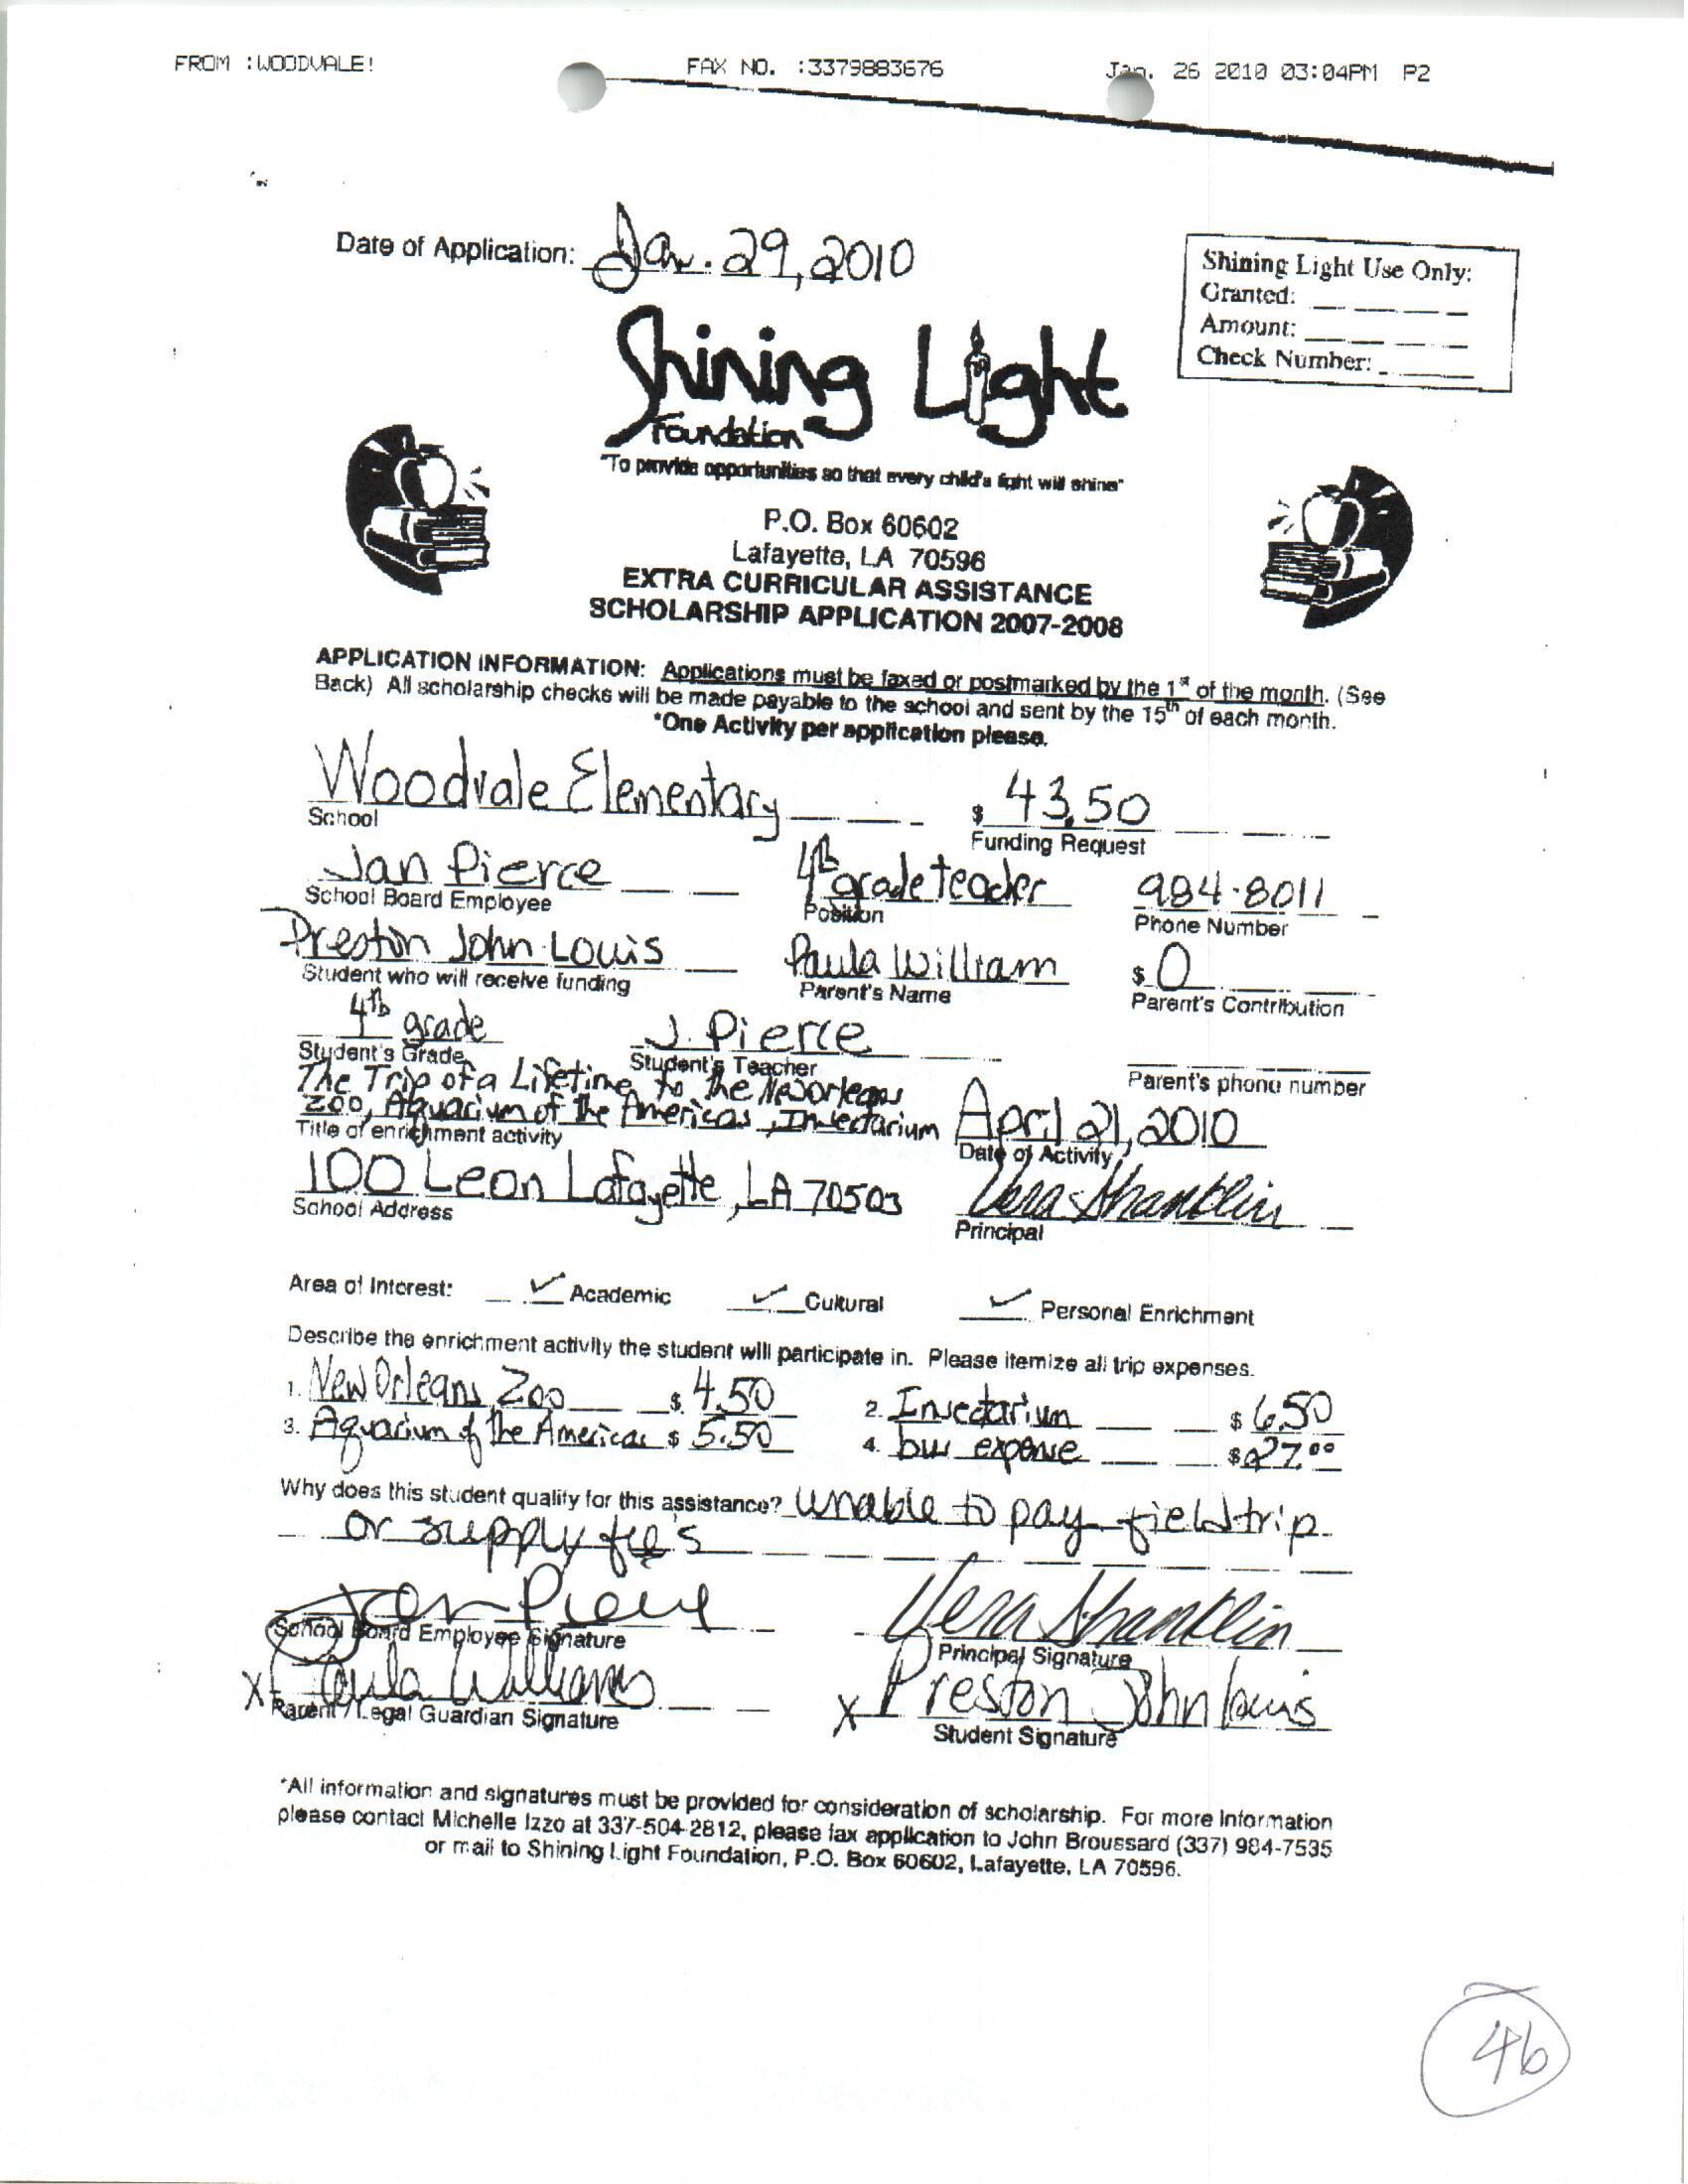 FROM :WOODVALE! FAX NO. :3379883676 Jan. 26 2010 03:04PM P2
Date of Application: Jan. 29, 2010
Shining Light Use Only:
Granted:
Amount:
Check Number:
Shining Light
Foundation
"To provide opportunities so that every child's light will shine"
P.O. Box 60602
Lafayette, LA 70596
EXTRA CURRICULAR ASSISTANCE
SCHOLARSHIP APPLICATION 2007-2008
APPLICATION INFORMATION: Applications must be faxed or postmarked by the 1st of the month. (See
Back) All scholarship checks will be made payable to the school and sent by the 15th of each month.
*One Activity per application please.
Woodvale Elementary $ 43.50
School Funding Request
Jan Pierce 4th grade teacher 984-8011
School Board Employee Position Phone Number
Preston John Louis Paula William $ 0
Student who will receive funding Parent's Name Parent's Contribution
4th grade J. Pierce
Student's Grade Student's Teacher Parent's phone number
The Trip of a Lifetime to the New Orleans
Zoo, Aquarium of the Americas, Insectarium April 21, 2010
Title of enrichment activity Date of Activity
100 Leon Lafayette, LA 70503 Vera Shanklin
School Address Principal
Area of Interest: ✓ Academic ✓ Cultural ✓ Personal Enrichment
Describe the enrichment activity the student will participate in. Please itemize all trip expenses.
1. New Orleans Zoo $ 4.50 2. Insectarium $ 6.50
3. Aquarium of the Americas $ 5.50 4. bus expense $ 27.00
Why does this student qualify for this assistance? unable to pay fieldtrip
or supply fee's
Jan Pierce Vera Shanklin
School Board Employee Signature Principal Signature
X Paula Williams X Preston John louis
Parent / Legal Guardian Signature Student Signature
*All information and signatures must be provided for consideration of scholarship. For more information
please contact Michelle Izzo at 337-504-2812, please fax application to John Broussard (337) 984-7535
or mail to Shining Light Foundation, P.O. Box 60602, Lafayette, LA 70596.
46